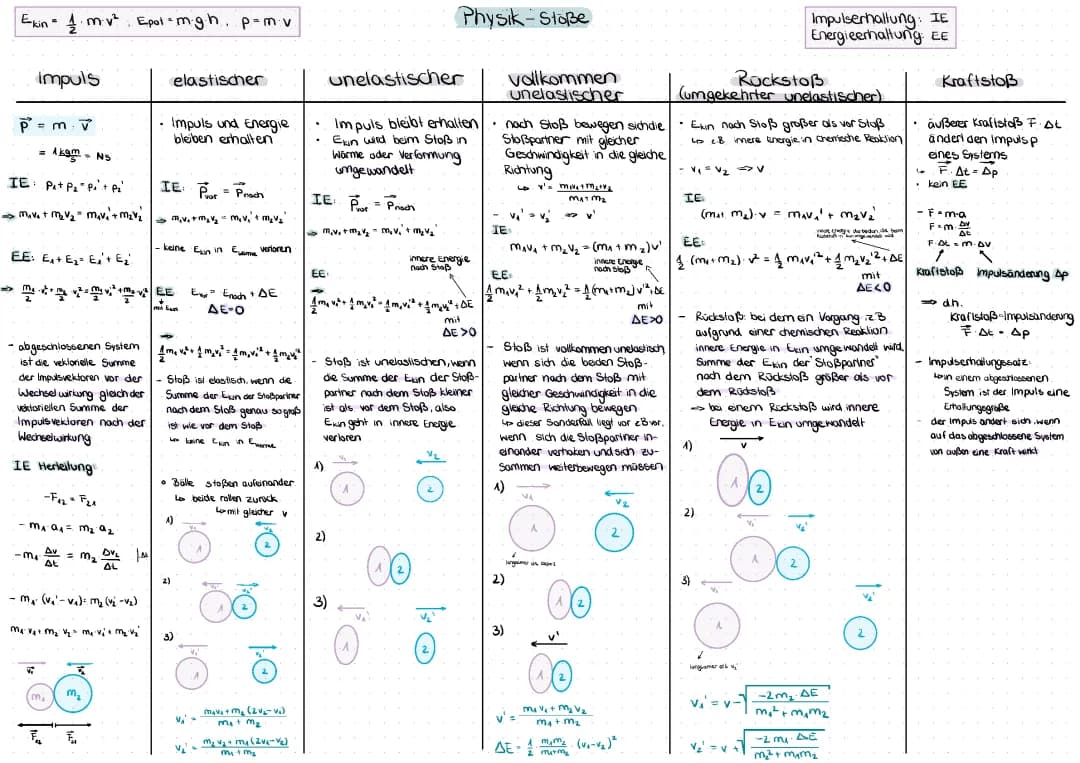 E_kin = 1/2 · m·v² , E_pot = m·g·h , p = m·v
Physik - Stöße
Impulserhaltung: IE
Energieerhaltung: EE
Impuls
p⃗ = m · v⃗
= 1 kgm/s = Ns
IE: p₁ + p₂ = p₁' + p₂'
⇒ m₁v₁ + m₂v₂ = m₁v₁' + m₂v₂'
EE: E₁ + E₂ = E₁' + E₂'
⇒ m₁/2 · v₁² + m₂/2 · v₂² = m₁/2 v₁'² + m₂/2 · v₂'²
- abgeschlossenen System
ist die vektorielle Summe
der Impulsvektoren vor der
Wechselwirkung gleich der
vektoriellen Summe der
Impulsvektoren nach der
Wechselwirkung
IE Herleitung:
-F₁₂ = F₂₁
- m₁ · a₁ = m₂ a₂
-m₁ · Δv/Δt = m₂ Δv₂/Δt | Δt
- m₁ · (v₁' - v₁) = m₂ (v₂' - v₂)
m₁ · v₁ + m₂ v₂ = m₁ · v₁' + m₂ v₂'
v₁ v₂
m₁ m₂
F₁₂ F₂₁
elastischer
• Impuls und Energie
bleiben erhalten
IE: P⃗vor = P⃗nach
⇒ m₁v₁ + m₂v₂ = m₁v₁' + m₂v₂'
- keine Ekin in Ewärme verloren
EE Evor = Enach + ΔE
mit Ekin ΔE=0
⇒
1/2 m₁v₁² + 1/2 m₂v₂² = 1/2 m₁v₁'² + 1/2 m₂v₂'²
- Stoß ist elastisch, wenn de
Summe der Ekin der Stoßpartner
nach dem Stoß genau so groß
ist wie vor dem Stoß
↳ keine Ekin in Ewärme
• Bälle stoßen aufeinander
↳ beide rollen zurück
↳ mit gleicher v
1) 1 v₂ 2
2) v₁' v₂' 1 2
3) v₁' 1 2
v₁' = m₁v₁ + m₂(2v₂ - v₁) / m₁ + m₂
v₂' = m₂v₂ + m₁(2v₁ - v₂) / m₁ + m₂
unelastischer
• Impuls bleibt erhalten
• Ekin wird beim Stoß in
Wärme oder Verformung
umgewandelt
IE: P⃗vor = P⃗nach
⇒ m₁v₁ + m₂v₂ = m₁v₁' + m₂v₂'
innere Energie
nach Stoß
EE:
1/2 m₁v₁² + 1/2 m₂v₂² = 1/2 m₁v₁'² + 1/2 m₂v₂'² + ΔE
mit
ΔE > 0
- Stoß ist unelastischen, wenn
die Summe der Ekin der Stoß-
partner nach dem Stoß kleiner
ist als vor dem Stoß, also
Ekin geht in innere Energie
verloren
1) v₁ v₂ 1 2
2) 1 2
3) v₁' v₂' 1 2
vollkommen
unelastischer
• nach Stoß bewegen sich die
Stoßpartner mit gleicher
Geschwindigkeit in die gleiche
Richtung
↳ v' = m₁v₁ + m₂v₂ / m₁ + m₂
- v₁' = v₂' ⇒ v'
IE:
m₁v₁ + m₂v₂ = (m₁ + m₂)v'
innere Energie
nach Stoß
EE:
1/2 m₁v₁² + 1/2 m₂v₂² = 1/2 (m₁ + m₂)v'² + ΔE
mit
ΔE>0
- Stoß ist vollkommen unelastisch,
wenn sich die beiden Stoß-
partner nach dem Stoß mit
gleicher Geschwindigkeit in die
gleiche Richtung bewegen
↳ dieser Sonderfall liegt vor z.B. vor,
wenn sich die Stoßpartner in-
einander verhaken und sich zu-
sammen weiterbewegen müssen
1) v₁ v₂ 1 2
langsamer als
2) 1 2
3) v' 1 2
v' = m₁v₁ + m₂v₂ / m₁ + m₂
ΔE = 1/2 · m₁m₂ / m₁+m₂ · (v₁ - v₂)²
Rückstoß
(umgekehrter unelastischer)
• Ekin nach Stoß größer als vor Stoß
↳ z.B innere Energie in chemische Reaktion
- v₁ = v₂ ⇒ v
IE:
(m₁ + m₂) · v = m₁v₁' + m₂v₂'
EE:
1/2 (m₁ + m₂) · v² = 1/2 m₁v₁'² + 1/2 m₂v₂'² + ΔE
mit
ΔE<0
- Rückstoß: bei dem ein Vorgang z.B
aufgrund einer chemischen Reaktion
innere Energie in Ekin umgewandelt wird,
Summe der Ekin der "Stoßpartner"
nach dem Rückstoß größer als vor
dem Rückstoß
⇒ bei einem Rückstoß wird innere
Energie in Ekin umgewandelt
1) v 1 2
2) v₁' v₂' 1 2
3) v₁' v₂' 1 2
langsamer als v₂'
v₁' = v - √(-2m₂ · ΔE / m₁² + m₁m₂)
v₂' = v + √(-2m₁ · ΔE / m₂² + m₁m₂)
Kraftstoß
• äußerer Kraftstoß F⃗ · Δt
ändert den Impuls p
eines Systems
→ F⃗ · Δt = Δp
• kein EE
- F = m·a
F = m · Δv/Δt
F · Δt = m · Δv
Kraftstoß Impulsänderung Δp
⇒ d.h.
Kraftstoß = Impulsänderung
F⃗ · Δt = Δp
- Impulserhaltungssatz:
↳ in einem abgeschlossenen
System ist der Impuls eine
Erhaltungsgröße
- der Impuls ändert sich, wenn
auf das abgeschlossene System
von außen eine Kraft wirkt